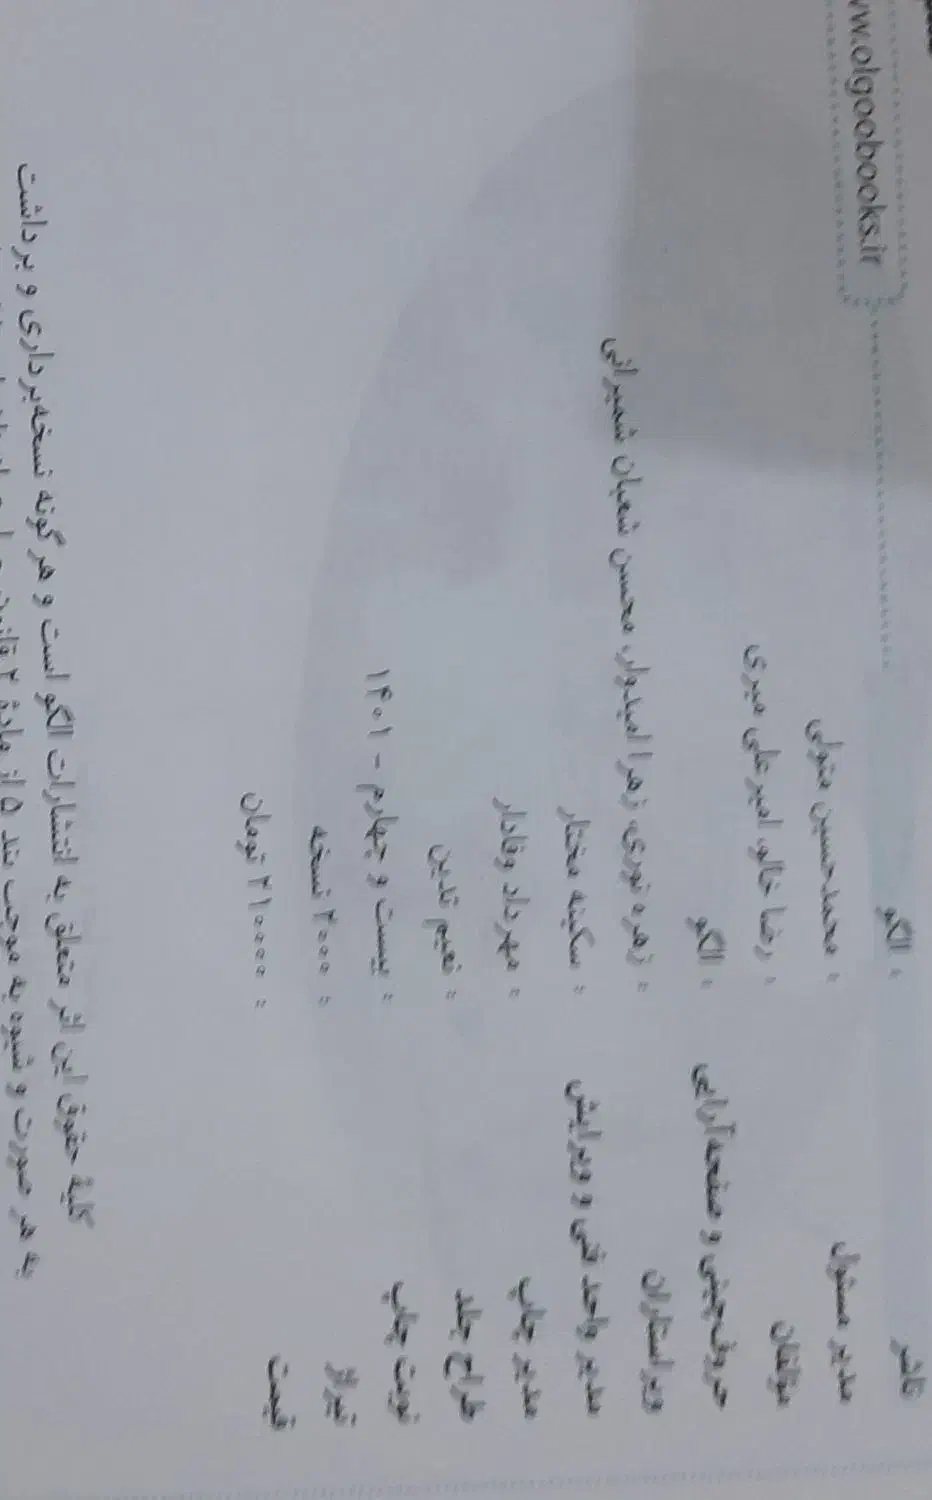 www.olgoobooks.ir
ناشر : الگو
مدیر مسئول : محمدحسین متولی
مؤلفان : رضا خالو، امیرعلی میری
حروف‌چینی و صفحه‌آرایی : الگو
ویراستاران : زهره نوری، زهرا امیدوار، محسن شعبان شمیرانی
مدیر واحد فنی و ویرایش : سکینه مختار
مدیر چاپ : مهرداد وفادار
طراح جلد : نعیم تدین
نوبت چاپ : بیست و چهارم - ۱۴۰۱
تیراژ : ۲۰۰۰ نسخه
قیمت : ۲۱۰۰۰۰ تومان
کلیهٔ حقوق این اثر متعلق به انتشارات الگو است و هر گونه نسخه‌برداری و برداشت
به هر صورت و شیوه به موجب بند ۵ از مادهٔ ۲ قانون